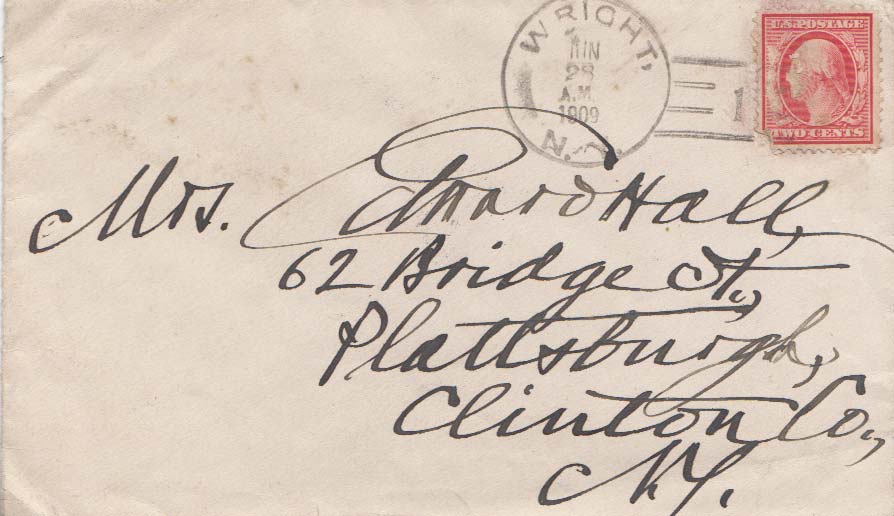 WRIGHT,
JUN
28
A.M.
1909
N.Y.
1
U.S. POSTAGE
TWO CENTS
Mrs. Edward Hall,
62 Bridge St.,
Plattsburgh,
Clinton Co.,
N.Y.